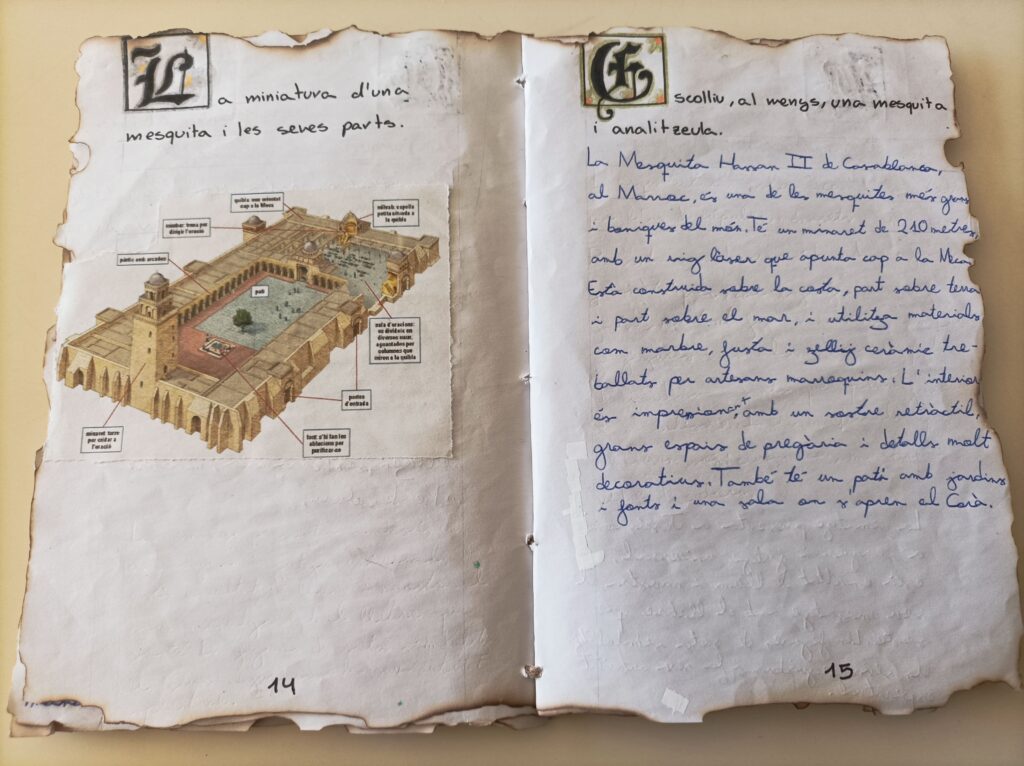 La miniatura d'una
mesquita i les seves parts.
quibla: mur orientat
cap a la Meca
mihrab: capella
petita situada a
la quibla
mimbar: trona per
dirigir l'oració
pòrtic amb arcades
pati
sala d'oracions:
es divideix en
diverses naus,
aguantades per
columnes que
miren a la quibla
portes
d'entrada
font: s'hi fan les
ablucions per
purificar-se
minaret: torre
per cridar a
l'oració
14
Escolliu, al menys, una mesquita
i analitzeula.
La Mesquita Hassan II de Casablanca,
al Marroc, és una de les mesquites més grans
i boniques del món. Té un minaret de 210 metres,
amb un raig làser que apunta cap a la Meca.
Esta construida sobre la costa, part sobre terra
i part sobre el mar, i utilitza materials
com marbre, fusta i zellij ceràmic tre-
ballats per artesans marroquins. L'interior
és impresionant, amb un sostre retràctil,
grans espais de pregària i detalls molt
decoratius. També té un pati amb jardins
i fonts i una sala on s'apren el Corà.
15